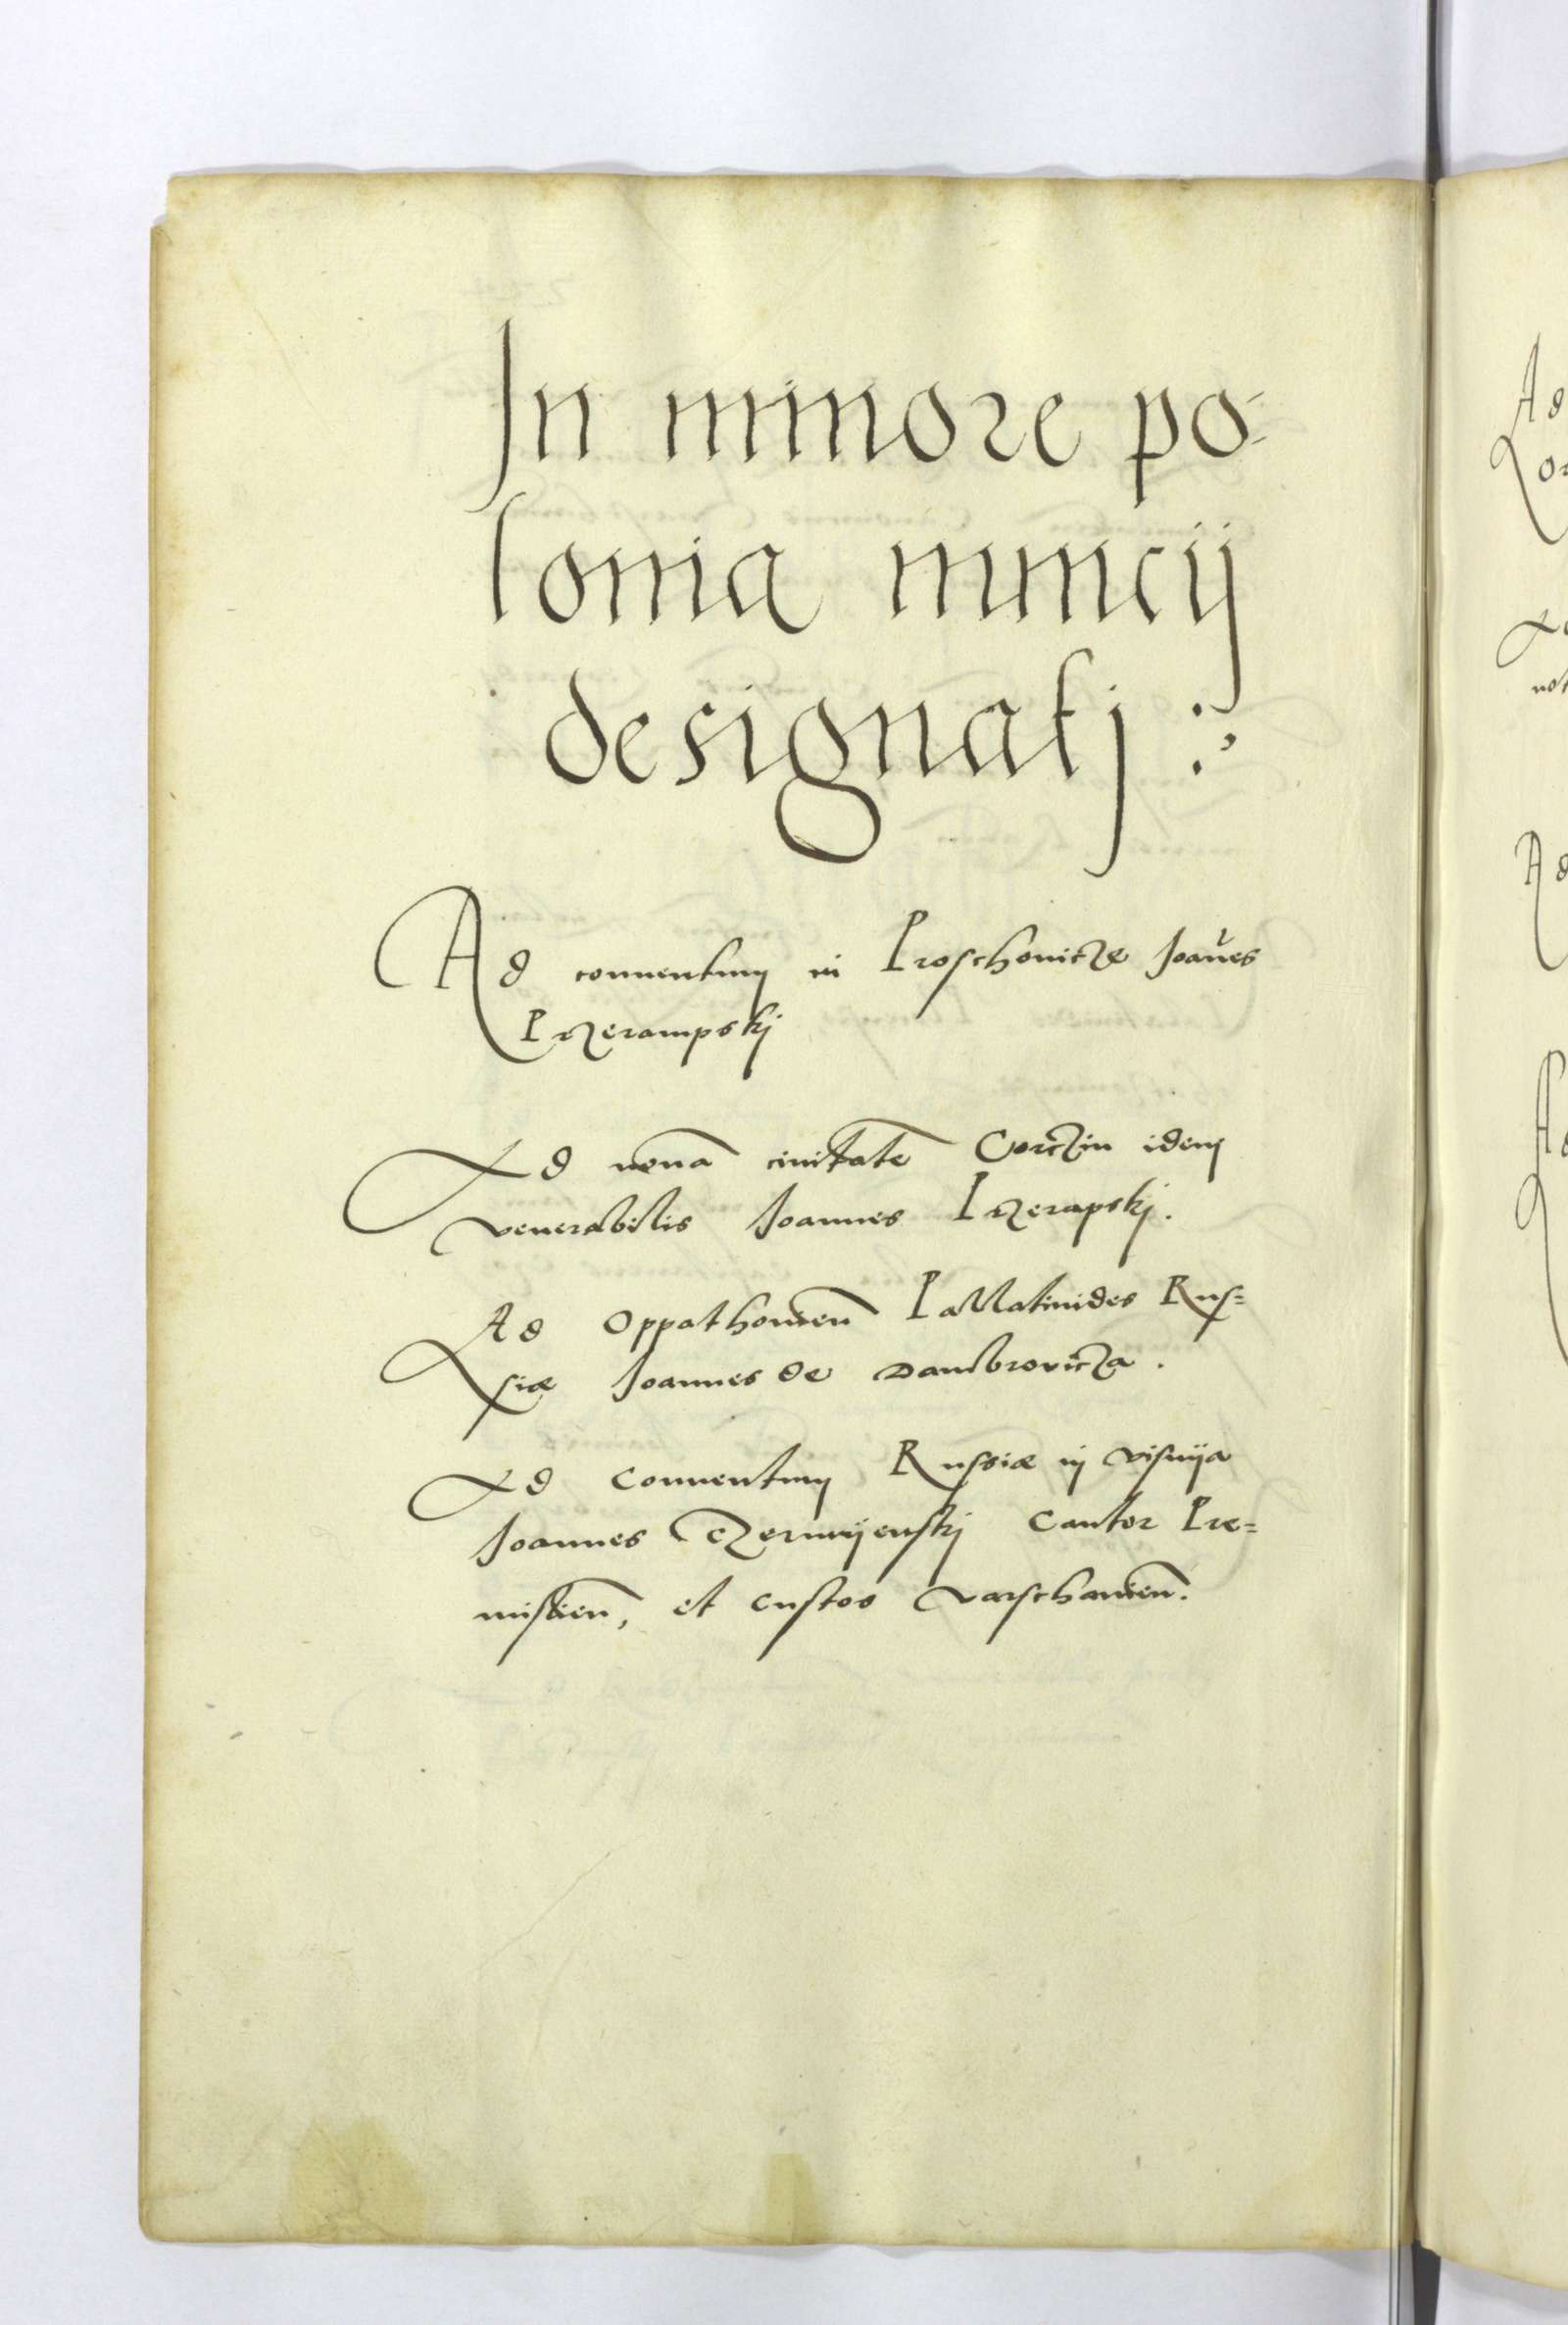 In minore po-
lonia nuncij
designatj :,
Ad conuentum in Proschouicze Joanes
Przerampskj
Ad nouā ciuitatē Corczin idem
venerabilis Joannes Przerapskj.
Ad Oppathouien̄ Pallatinides Rus=
siæ Joannes de Dambrovicza.
Ad Conuentum Russiæ in visnija
Joannes Czerwijenskj Cantor Pre=
mislien̄, et Custos varschouien̄.